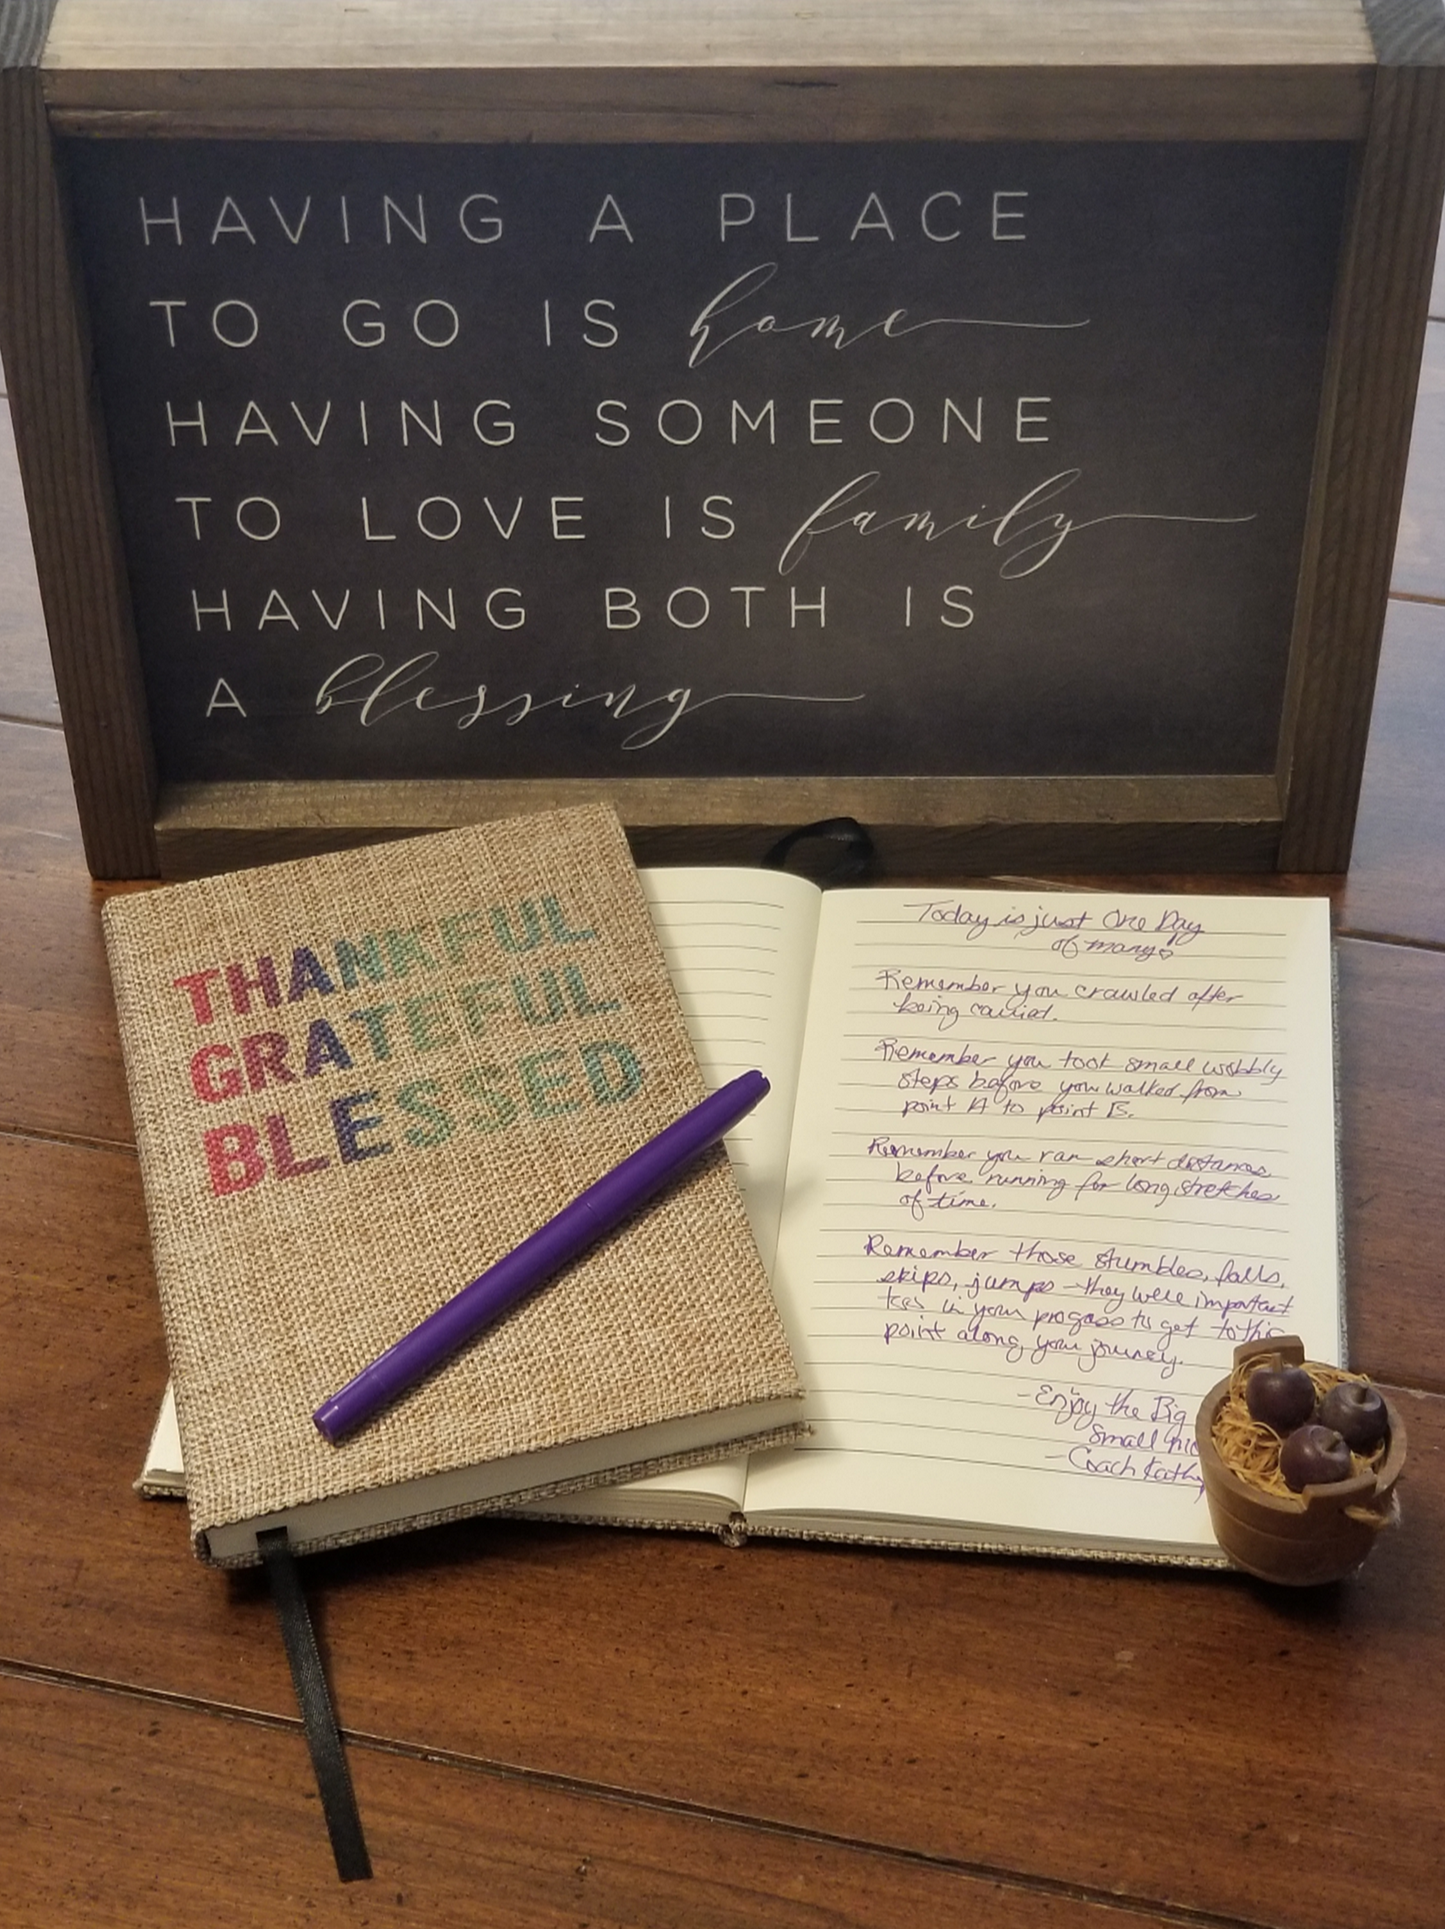 HAVING A PLACE
TO GO IS home
HAVING SOMEONE
TO LOVE IS family
HAVING BOTH IS
A blessing
THANKFUL
GRATEFUL
BLESSED
Today is just One Day
of many
Remember you crawled after
being carried.
Remember you took small wobbly
steps before you walked from
point A to point B.
Remember you ran short distances
before running for long stretches
of time.
Remember those stumbles, falls,
skips, jumps - they were important
in your progress to get to this
point along your journey.
- Enjoy the Big
small
- Coach Kathy